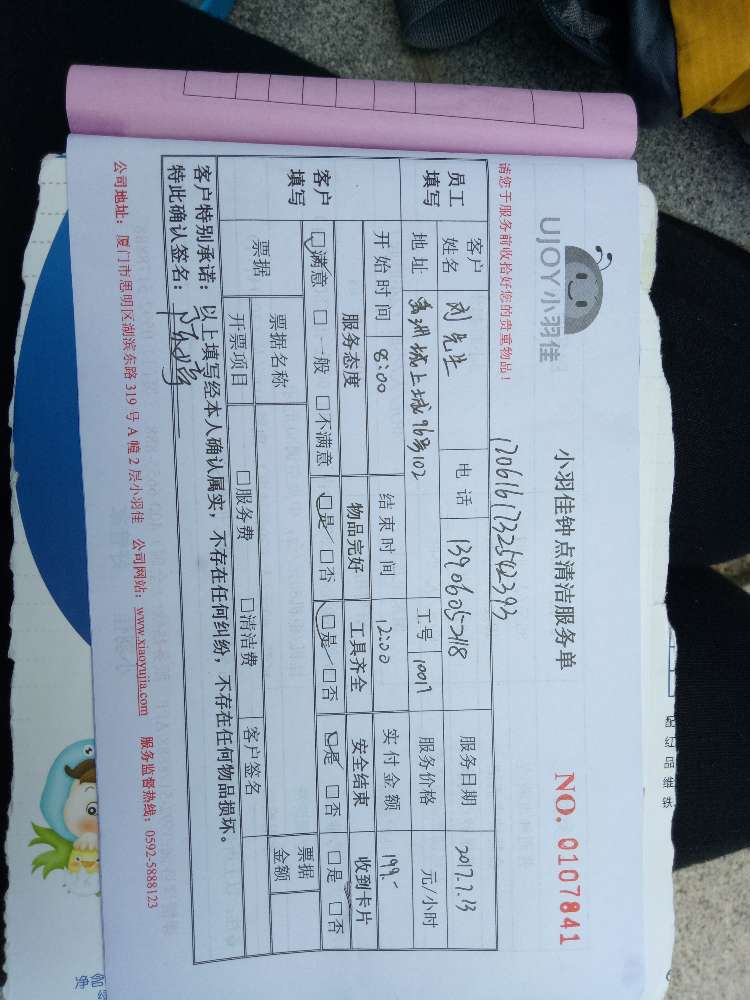 UJOY小羽佳
小羽佳钟点清洁服务单
NO. 0107841
请您于服务前收拾好您的贵重物品！
员工填写
客户姓名 刘先生 电话 13906052118 服务日期 2017.7.13
地址 工号 10017 服务价格 元/小时
开始时间 8:00 结束时间 12:00 实付金额 199.-
客户填写
服务态度 物品完好 工具齐全 安全结束 收到卡片
☑满意 □一般 □不满意 ☑是 □否 ☑是 □否 ☑是 □否 □是 □否
票据 票据名称 票据金额
开票项目 □服务费 □清洁费 客户签名
客户特别承诺：以上填写经本人确认属实，不存在任何纠纷，不存在任何物品损坏。
特此确认签名：
公司地址：厦门市思明区湖滨东路 319 号 A 幢 2 层小羽佳 公司网站：www.xiaoyujia.com 服务监督热线：0592-5888123